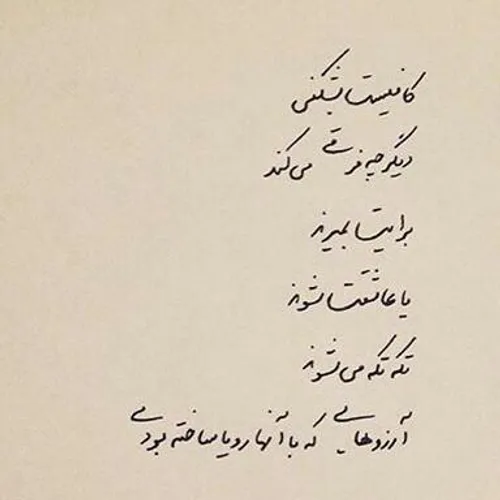 کافیست بشکنی
دیگر چه فرقی می‌کند
برایت بمیرند
یا عاشقت شوند
تکه تکه می‌شوند
آرزوهایی که با آنها رویا ساخته بودی